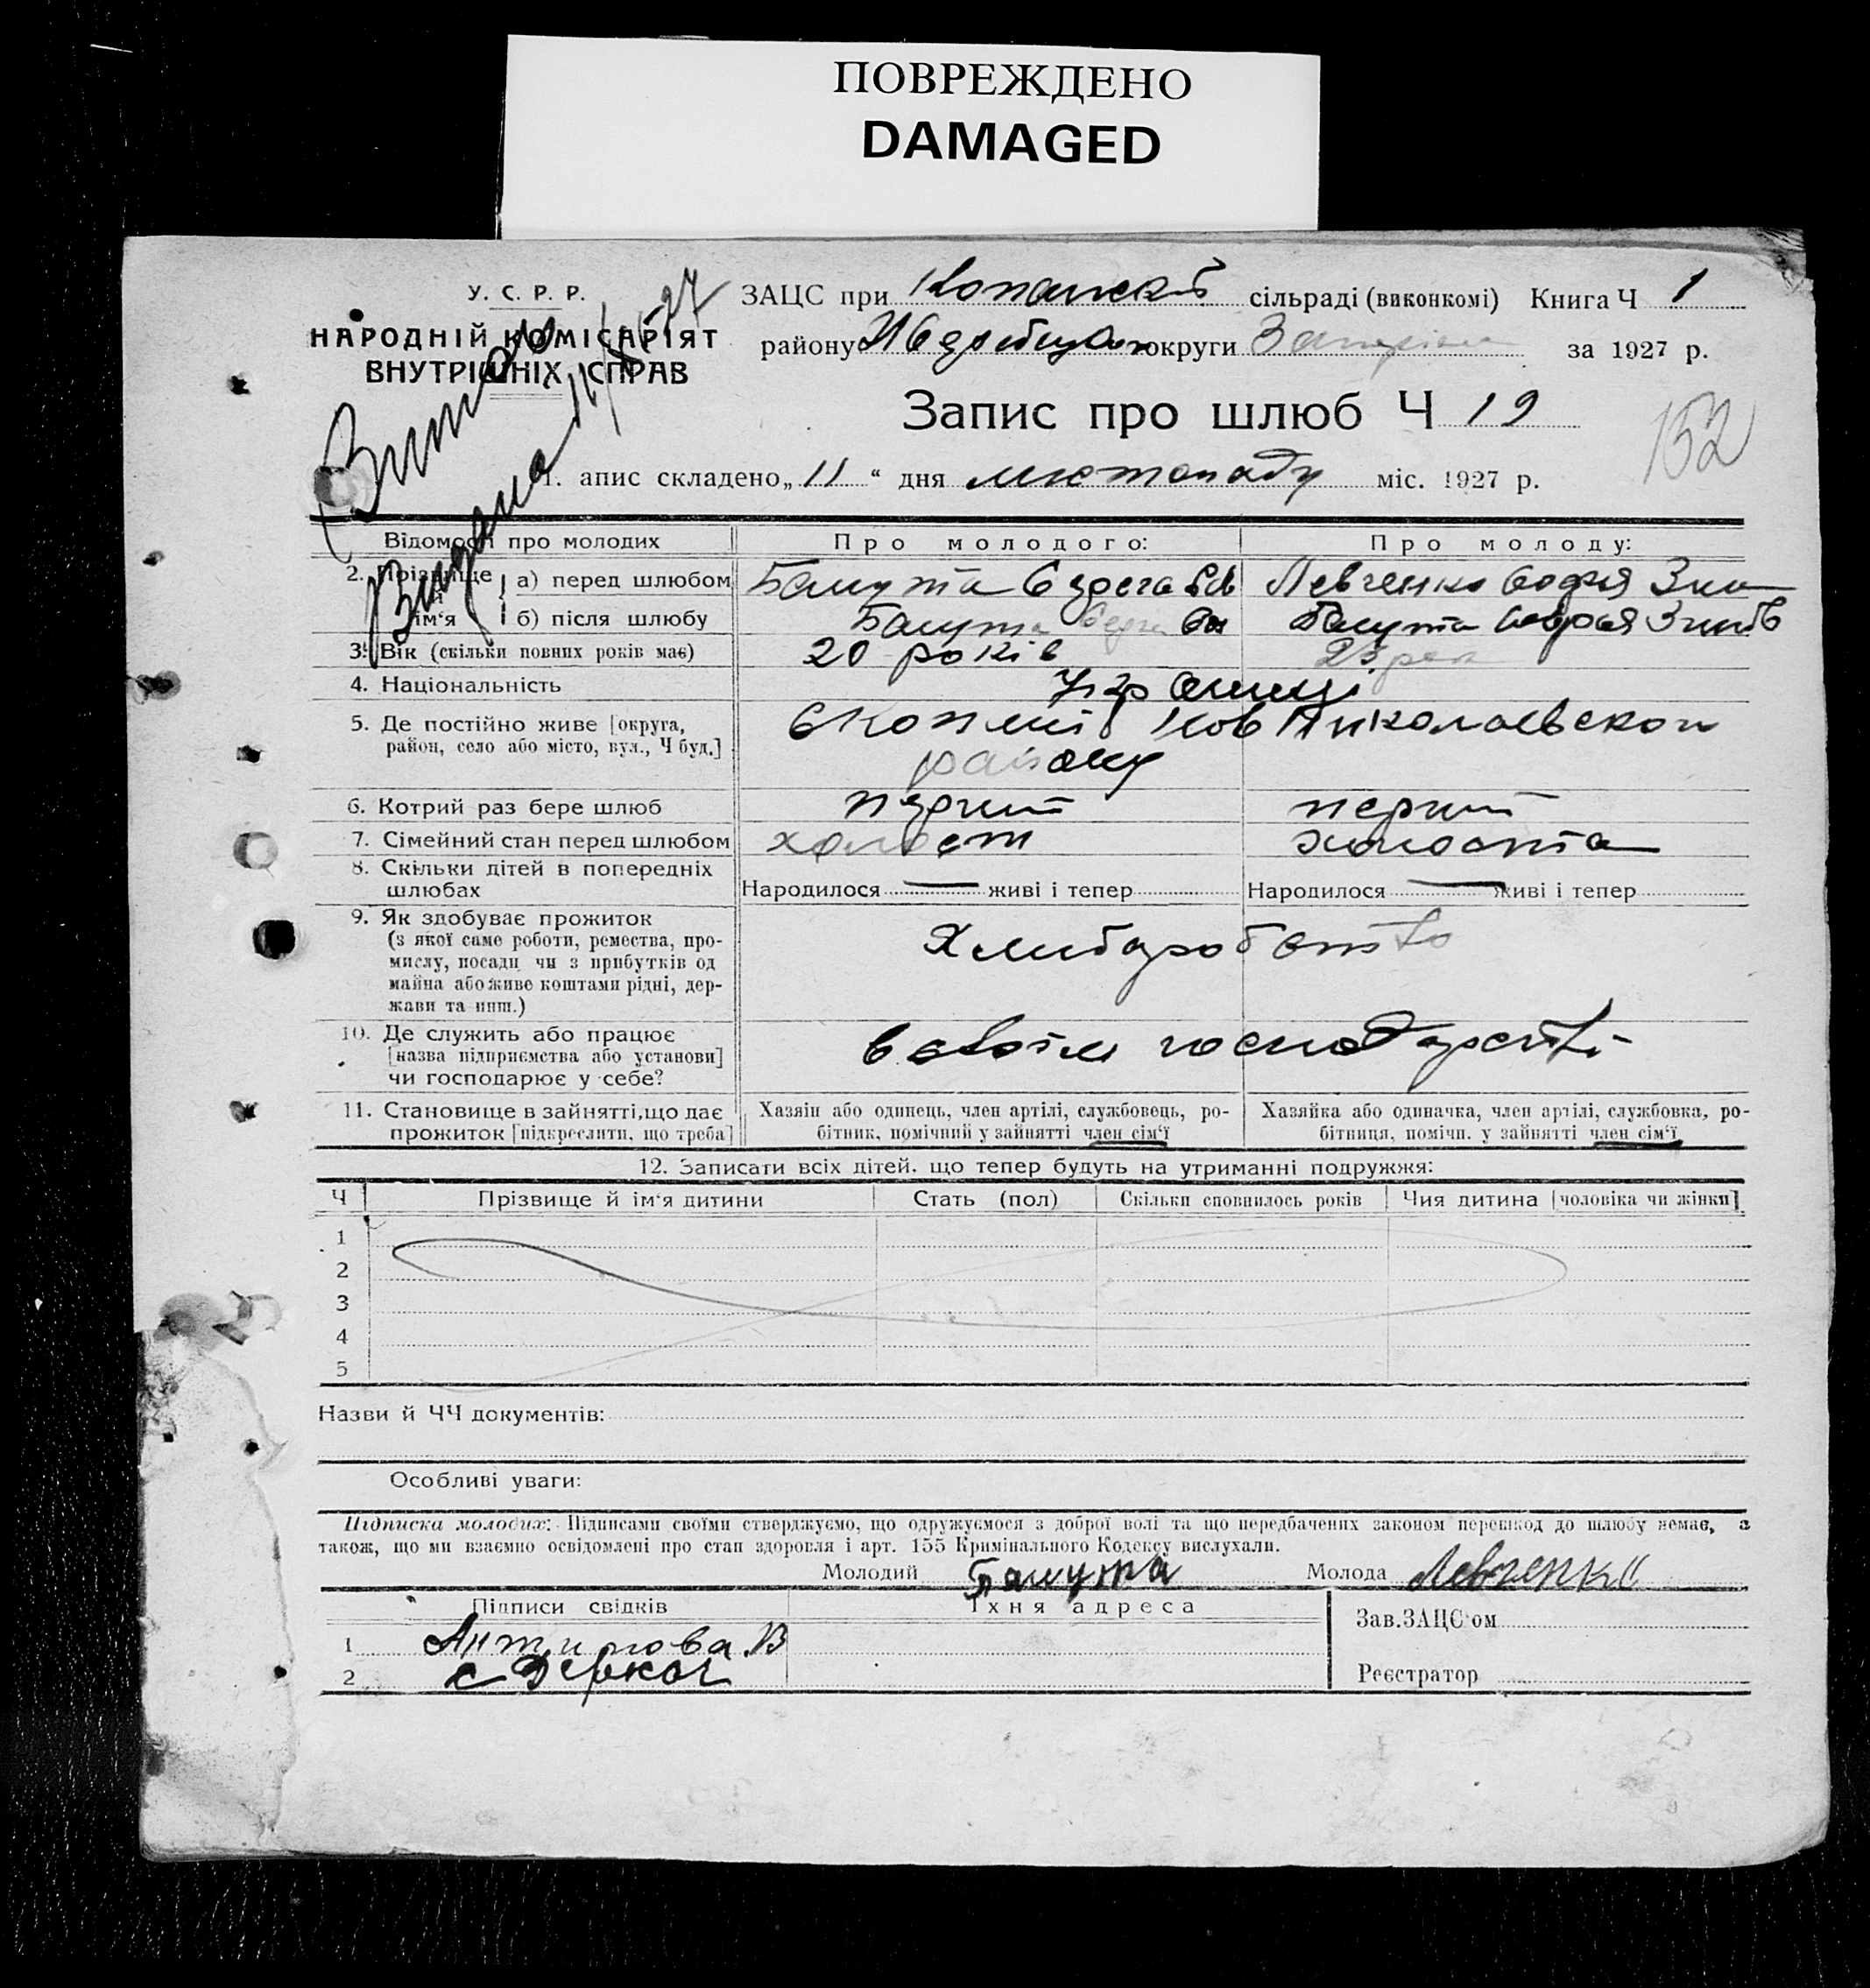 ПОВРЕЖДЕНО
DAMAGED
У. С. Р. Р.
НАРОДНІЙ КОМІСАРІЯТ
ВНУТРІШНІХ СПРАВ
ЗАЦС при сільраді (виконкомі) Книга Ч 1
району округи за 1927 р.
Запис про шлюб Ч 19
152
1. апис складено „11“ дня листопаду міс. 1927 р.
Відомості про молодих
Про молодого:
Про молоду:
2. Прізвище й ім'я
а) перед шлюбом
Левченко Софія
б) після шлюбу
3. Вік (скільки повних років має)
20 років
4. Національність
5. Де постійно живе [округа,
район, село або місто, вул., Ч буд.]
району
6. Котрий раз бере шлюб
7. Сімейний стан перед шлюбом
холост
холоста
8. Скільки дітей в попередніх
шлюбах
Народилося — живі і тепер
Народилося — живі і тепер
9. Як здобуває прожиток
(з якої саме роботи, ремества, про-
мислу, посади чи з прибутків од
майна або живе коштами рідні, дер-
жави та инш.)
10. Де служить або працює
[назва підприємства або установи]
чи господарює у себе?
в своїм господарстві
11. Становище в зайнятті, що дає
прожиток [підкреслити, що треба]
Хазяїн або одинець, член артілі, службовець, ро-
бітник, помічний у зайнятті член сім'ї
Хазяйка або одиначка, член артілі, службовка, ро-
бітниця, помічн. у зайнятті член сім'ї
12. Записати всіх дітей, що тепер будуть на утриманні подружжя:
Ч
Прізвище й ім'я дитини
Стать (пол)
Скільки сповнилось років
Чия дитина [чоловіка чи жінки]
1
2
3
4
5
Назви й ЧЧ документів:
Особливі уваги:
Підписка молодих: Підписами своїми стверджуємо, що одружуємося з доброї волі та що передбачених законом перешкод до шлюбу немає, а
також, що ми взаємно освідомлені про стан здоровля і арт. 155 Кримінального Кодексу вислухали.
Молодий
Молода Левченко
Підписи свідків
Їхня адреса
Зав. ЗАЦС'ом
1
2 С Деркач
Реєстратор